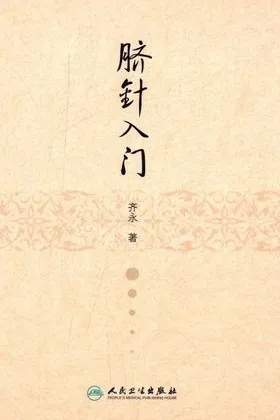 脐針入门
齐永 著
人民卫生出版社
PEOPLE'S MEDICAL PUBLISHING HOUSE